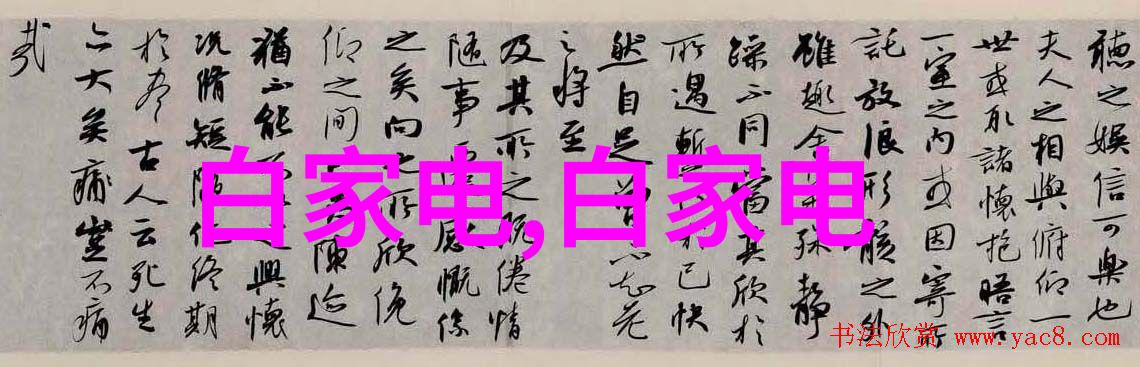 聽之娛信可樂也
夫人之相與俯仰一
世或取諸懷抱晤言
一室之內或因寄所
託放浪形骸之外
雖趣舍殊靜
躁不同當其欣於
所遇暫己快
然自足曾不知老
之將至
及其所之既倦情
隨事遷感慨係
之矣向之所欣俛
仰之間陳迹
猶不能不以之興懷
況脩短隨化終期
於盡古人云死生
亦大矣痛豈不痛
哉
白家电,白家电
书法欣赏 www.yac8.com